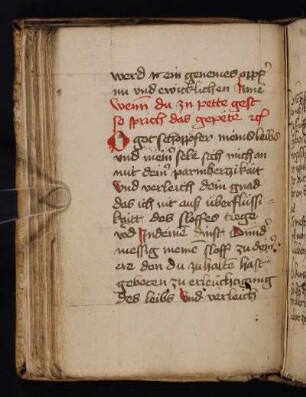 werd ein genemes opff
nu und ewicklichen Ame
wenn du zu pette gest
so sprich das gepete
O got schopffer meins leibs
und meiner sele sich mich an
mit deiner parmherzikait
und verleich dein gnad
das ich nit auß uberflüss-
kaitt des sloffes trege
in deinem dinst Sunder
messig meinen sloff zu deiner
ere den du zu halten hast
geboten zu erleuchtigung
des leibs und verleich